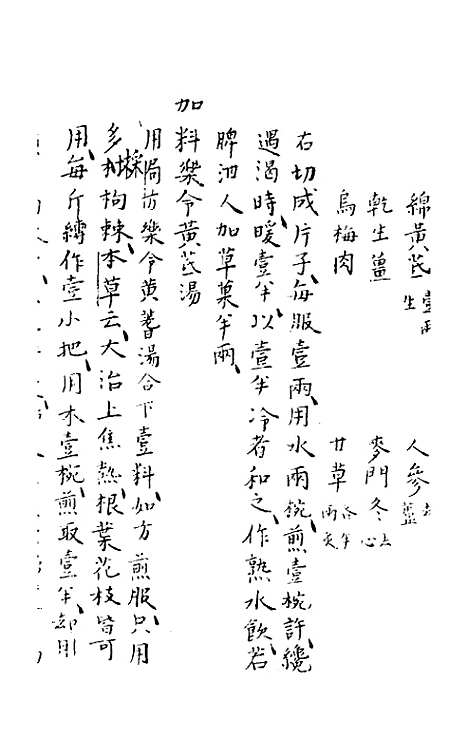 綿黃芪壹兩生 人參去蘆
乾生薑 麥門冬去心
烏梅肉 甘草各半兩炙
右切成片子每服壹兩用水兩椀煎壹椀許纔
過渴時暖壹半以壹半冷者和之作熟水飲若
脾泄人加草菓半兩
加料樂令黃芪湯
用局方樂令黃蓍湯合下壹料如方煎服只用
多採枸棘本草云大治上焦熱根葉花枝皆可
用每斤縛作壹小把用水壹椀煎取壹半却用